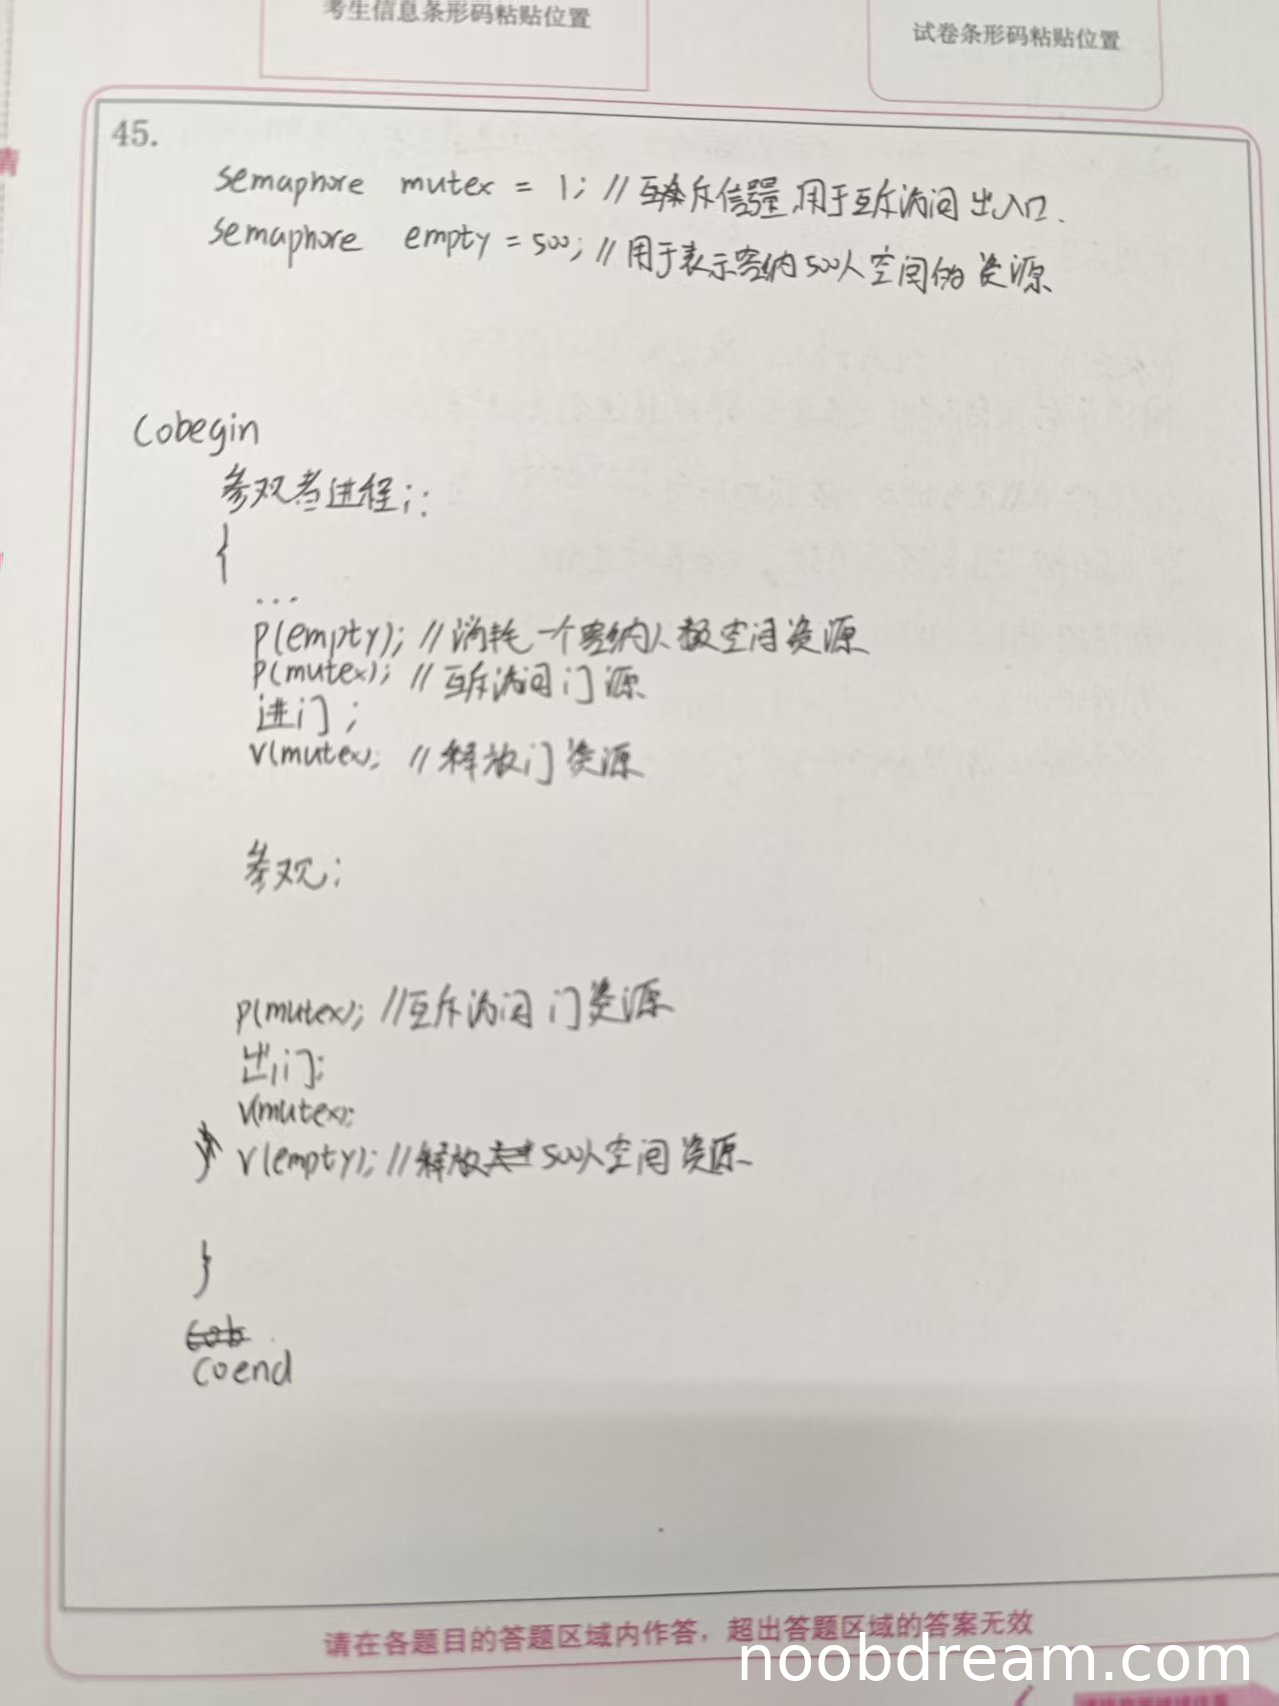 考生信息条形码粘贴位置
试卷条形码粘贴位置
45.
semaphore mutex = 1; // 互斥信号量,用于互斥访问出入口.
semaphore empty = 500; // 用于表示容纳500人空间的资源
Cobegin
参观者进程i:
{
...
P(empty); // 消耗一个容纳人数空间资源
P(mutex); // 互斥访问门源
进门;
V(mutex); // 释放门资源
参观;
P(mutex); // 互斥访问门资源
出门;
V(mutex);
V(empty); // 释放500人空间资源
}
Cob
Coend
请在各题目的答题区域内作答，超出答题区域的答案无效
noobdream.com